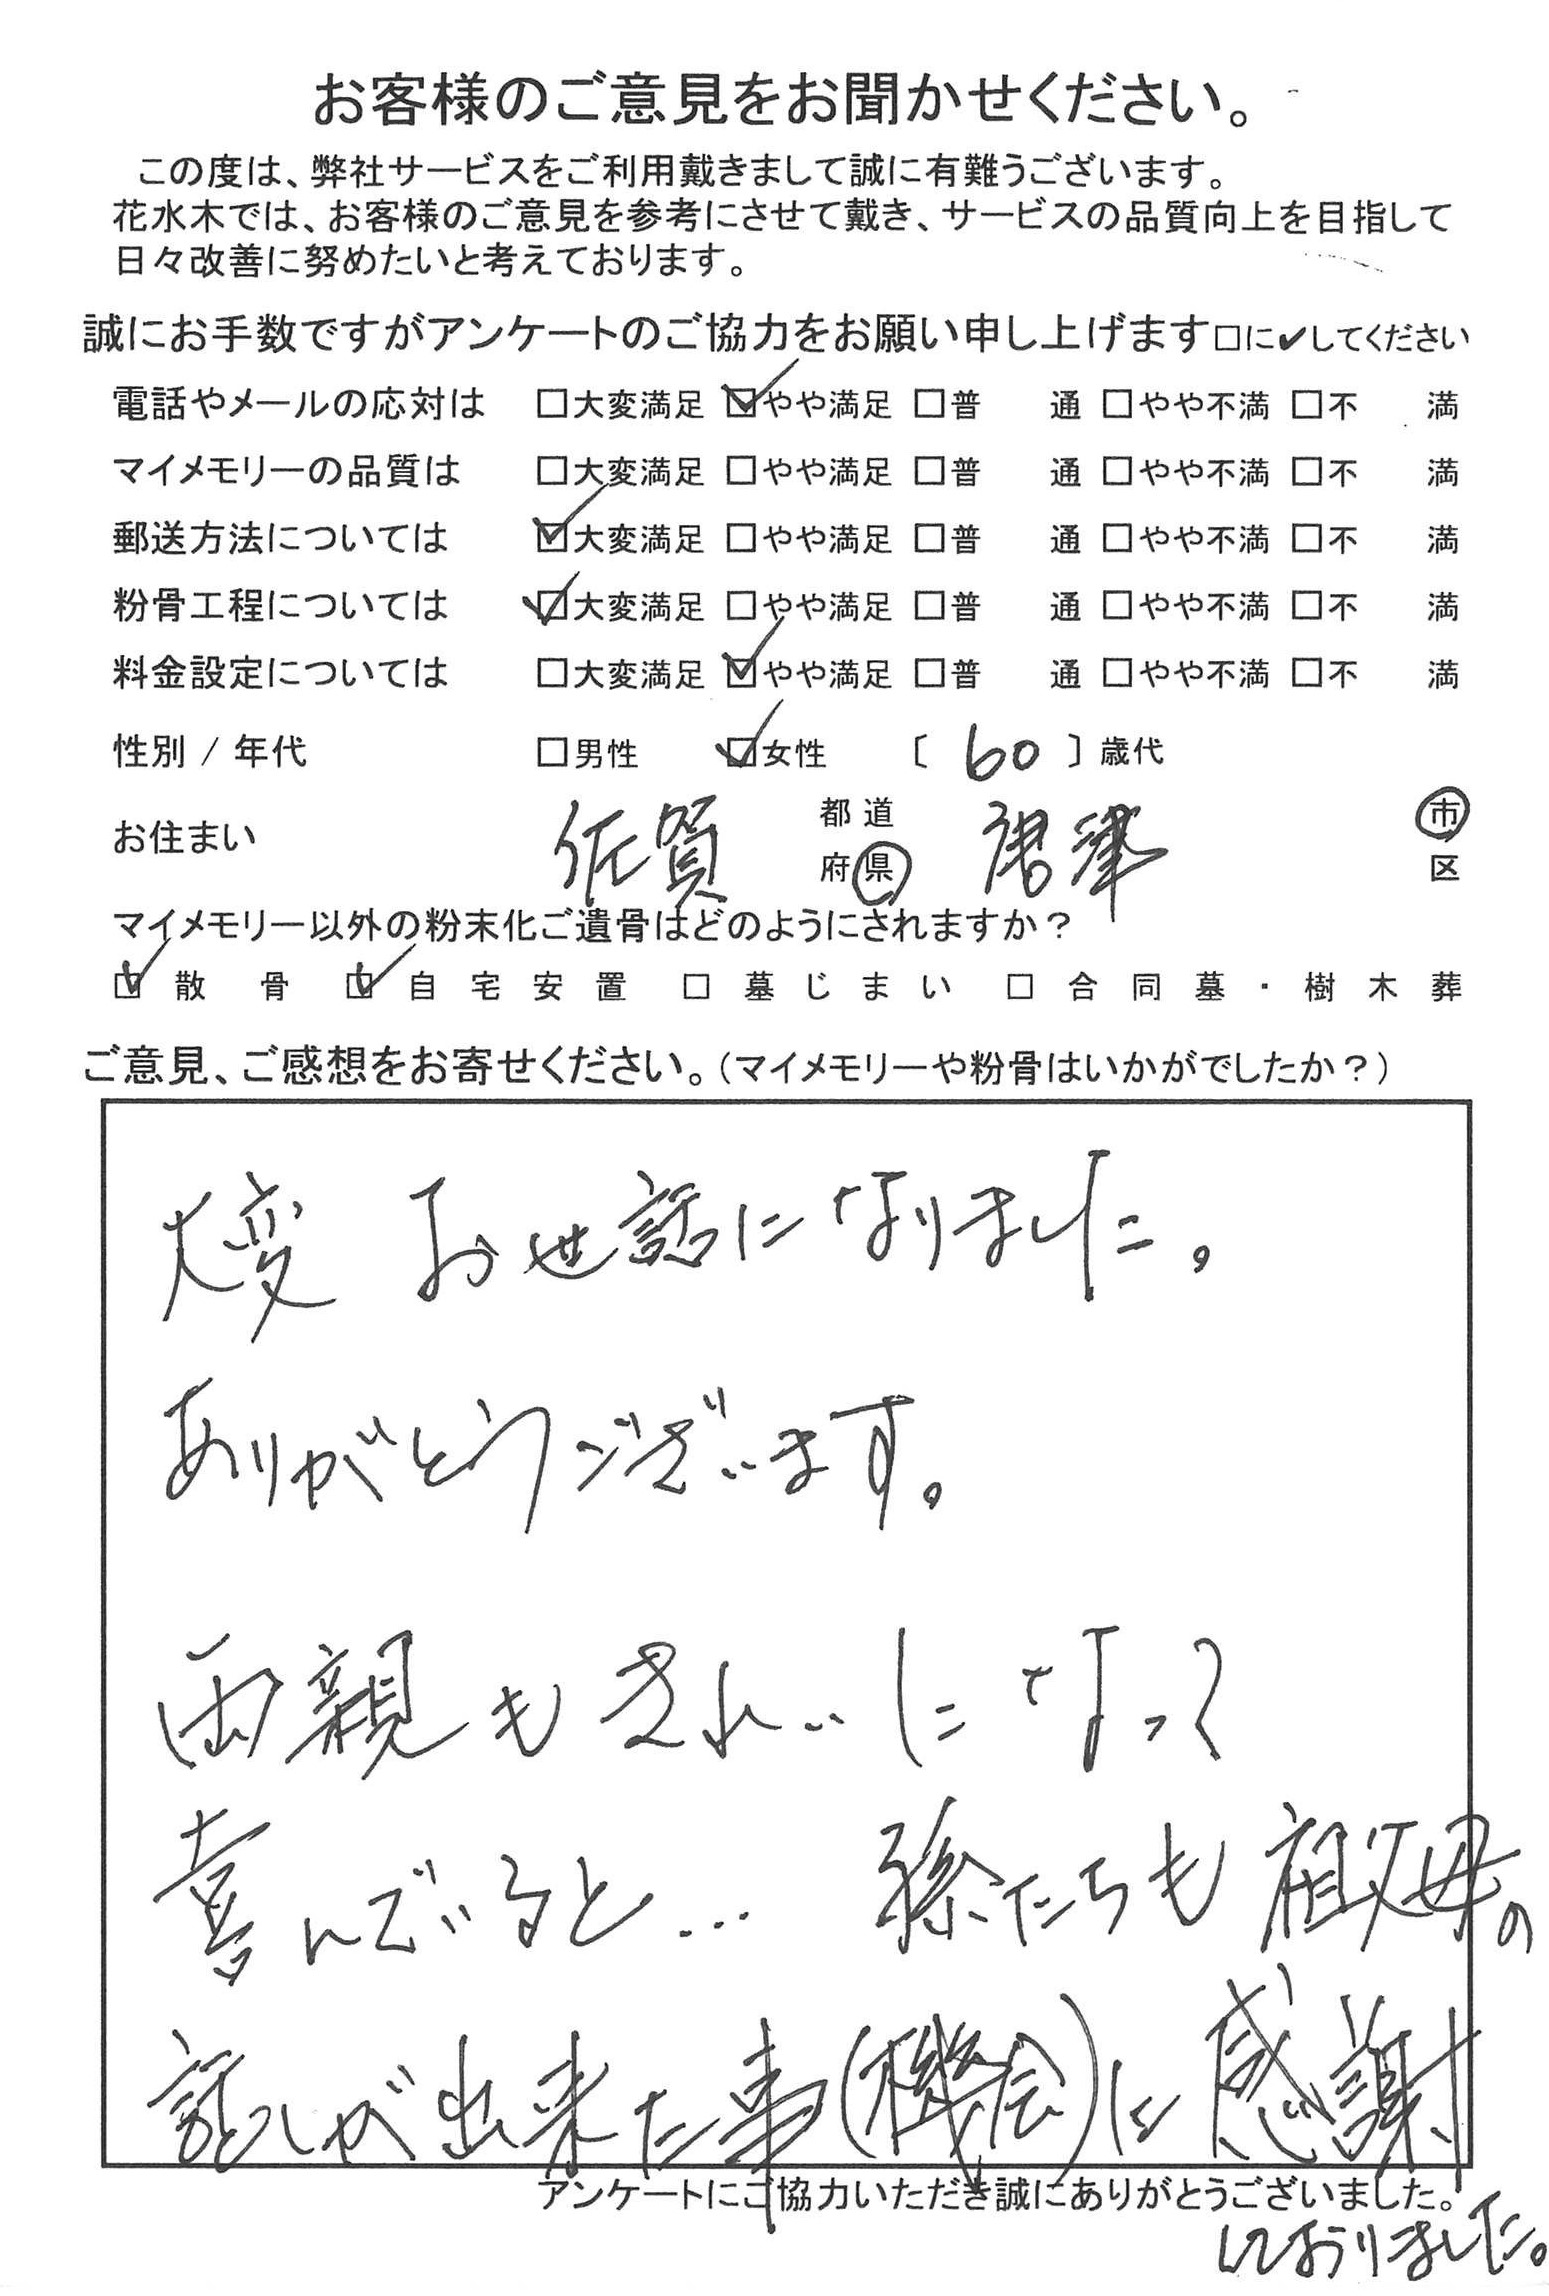 お客様のご意見をお聞かせください。
この度は、弊社サービスをご利用戴きまして誠に有難うございます。
花水木では、お客様のご意見を参考にさせて戴き、サービスの品質向上を目指して
日々改善に努めたいと考えております。
誠にお手数ですがアンケートのご協力をお願い申し上げます□に✔してください
電話やメールの応対は □大変満足 ☑やや満足 □普 通 □やや不満 □不 満
マイメモリーの品質は □大変満足 □やや満足 □普 通 □やや不満 □不 満
郵送方法については ☑大変満足 □やや満足 □普 通 □やや不満 □不 満
粉骨工程については ☑大変満足 □やや満足 □普 通 □やや不満 □不 満
料金設定については □大変満足 ☑やや満足 □普 通 □やや不満 □不 満
性別 / 年代 □男性 ☑女性 〔 60 〕歳代
お住まい 佐賀 都道府県 唐津 市区
マイメモリー以外の粉末化ご遺骨はどのようにされますか？
☑ 散骨 ☑ 自宅安置 □ 墓じまい □ 合同墓・樹木葬
ご意見、ご感想をお寄せください。（マイメモリーや粉骨はいかがでしたか？）
大変 お世話になりました。
ありがとうございます。
両親もきれいになって
喜んでいると… 孫たちも祖父母の
話しが出来た事(機会)に感謝
アンケートにご協力いただき誠にありがとうございました。
しておりました。